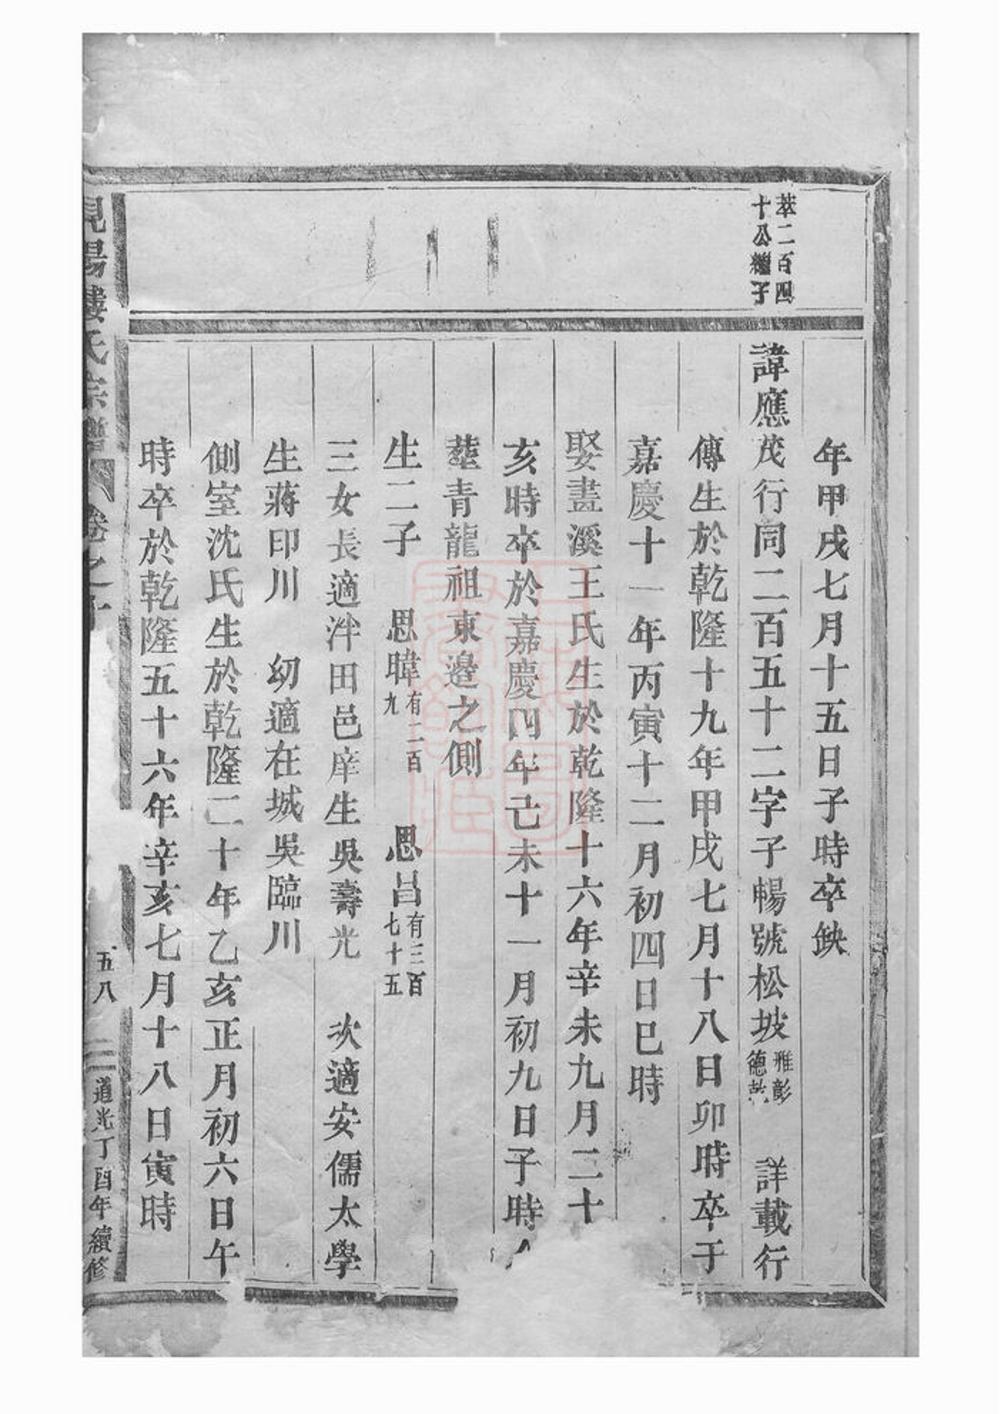 萃二百四
十公繼子
年甲戌七月十五日子時卒缺
諱應茂行同二百五十二字子暢號松坡雅彰德乾 詳載行
傳生於乾隆十九年甲戌七月十八日卯時卒于
嘉慶十一年丙寅十二月初四日巳時
娶畫溪王氏生於乾隆十六年辛未九月二十
亥時卒於嘉慶四年己未十一月初九日子時
塟青龍祖東邉之側
生二子 思暐有二百九 思昌有三百七十五
三女長適泮田邑庠生吳壽光 次適安儒太學
生蔣印川 幼適在城吳臨川
側室沈氏生於乾隆二十年乙亥正月初六日午
時卒於乾隆五十六年辛亥七月十八日寅時
陽婁氏宗譜 卷之十 五八 道光丁酉年續修